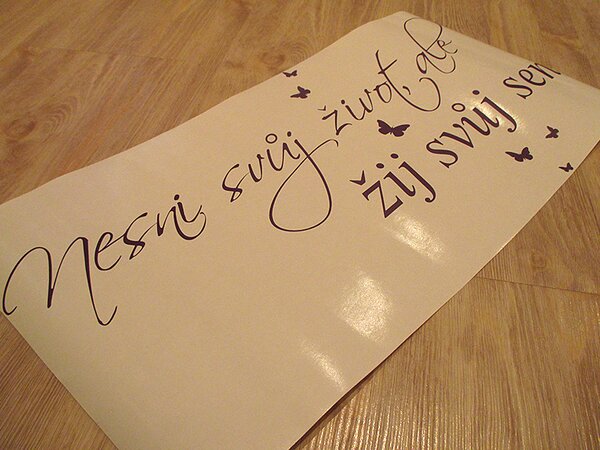 Nesni svůj život, ale
žij svůj sen